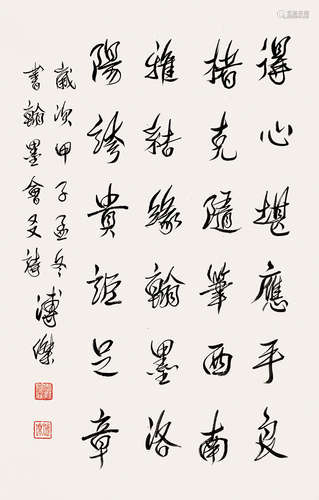 得心堪應手良
楮克隨筆西南
雅結緣翰墨洛
陽誇貴詎足章
歲次甲子孟冬
書翰墨會友詩 溥傑